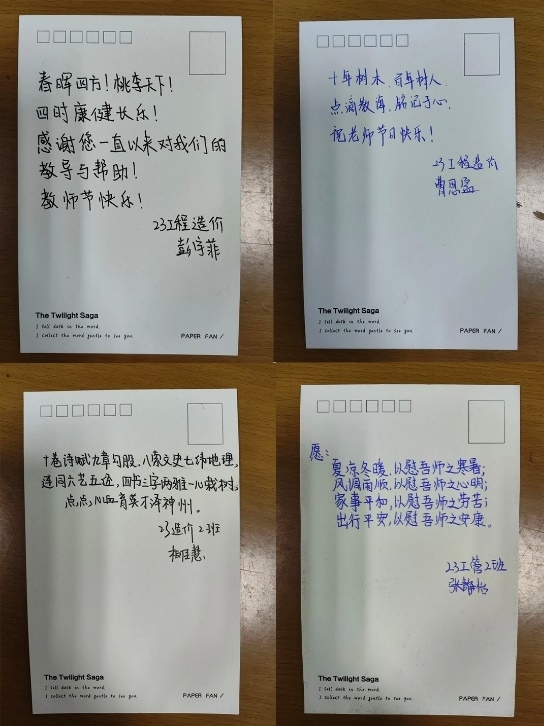 春晖四方！桃李天下！
四时康健长乐！
感谢您一直以来对我们的
教导与帮助！
教师节快乐！
23工程造价
彭宇菲
The Twilight Saga
I fell dark in the word.
I collect the word gently to see you.
PAPER FAN /
十年树木，百年树人
点滴教诲，铭记于心，
祝老师节日快乐！
23工程造价
曹恩盈
The Twilight Saga
I fell dark in the word.
I collect the word gently to see you.
PAPER FAN /
十卷诗赋九章勾股，八索文史七纬地理，
连同六艺五经，四书三字两雅一心栽树，
点点心血育英才泽神州。
23造价2班
The Twilight Saga
I fell dark in the word.
I collect the word gently to see you.
PAPER FAN /
愿：
夏凉冬暖，以慰吾师之寒暑；
风调雨顺，以慰吾师之心明；
家事平和，以慰吾师之劳苦；
出行平安，以慰吾师之安康。
23工管2班
张静怡
The Twilight Saga
I fell dark in the word.
I collect the word gently to see you.
PAPER FAN /